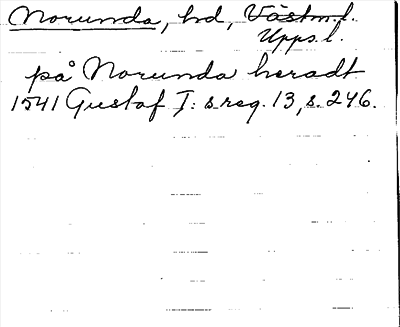 Norunda, hd, Västm.l.
Upps.l.
på Norunda heradt
1541 Gustaf I: s reg. 13, s. 246.